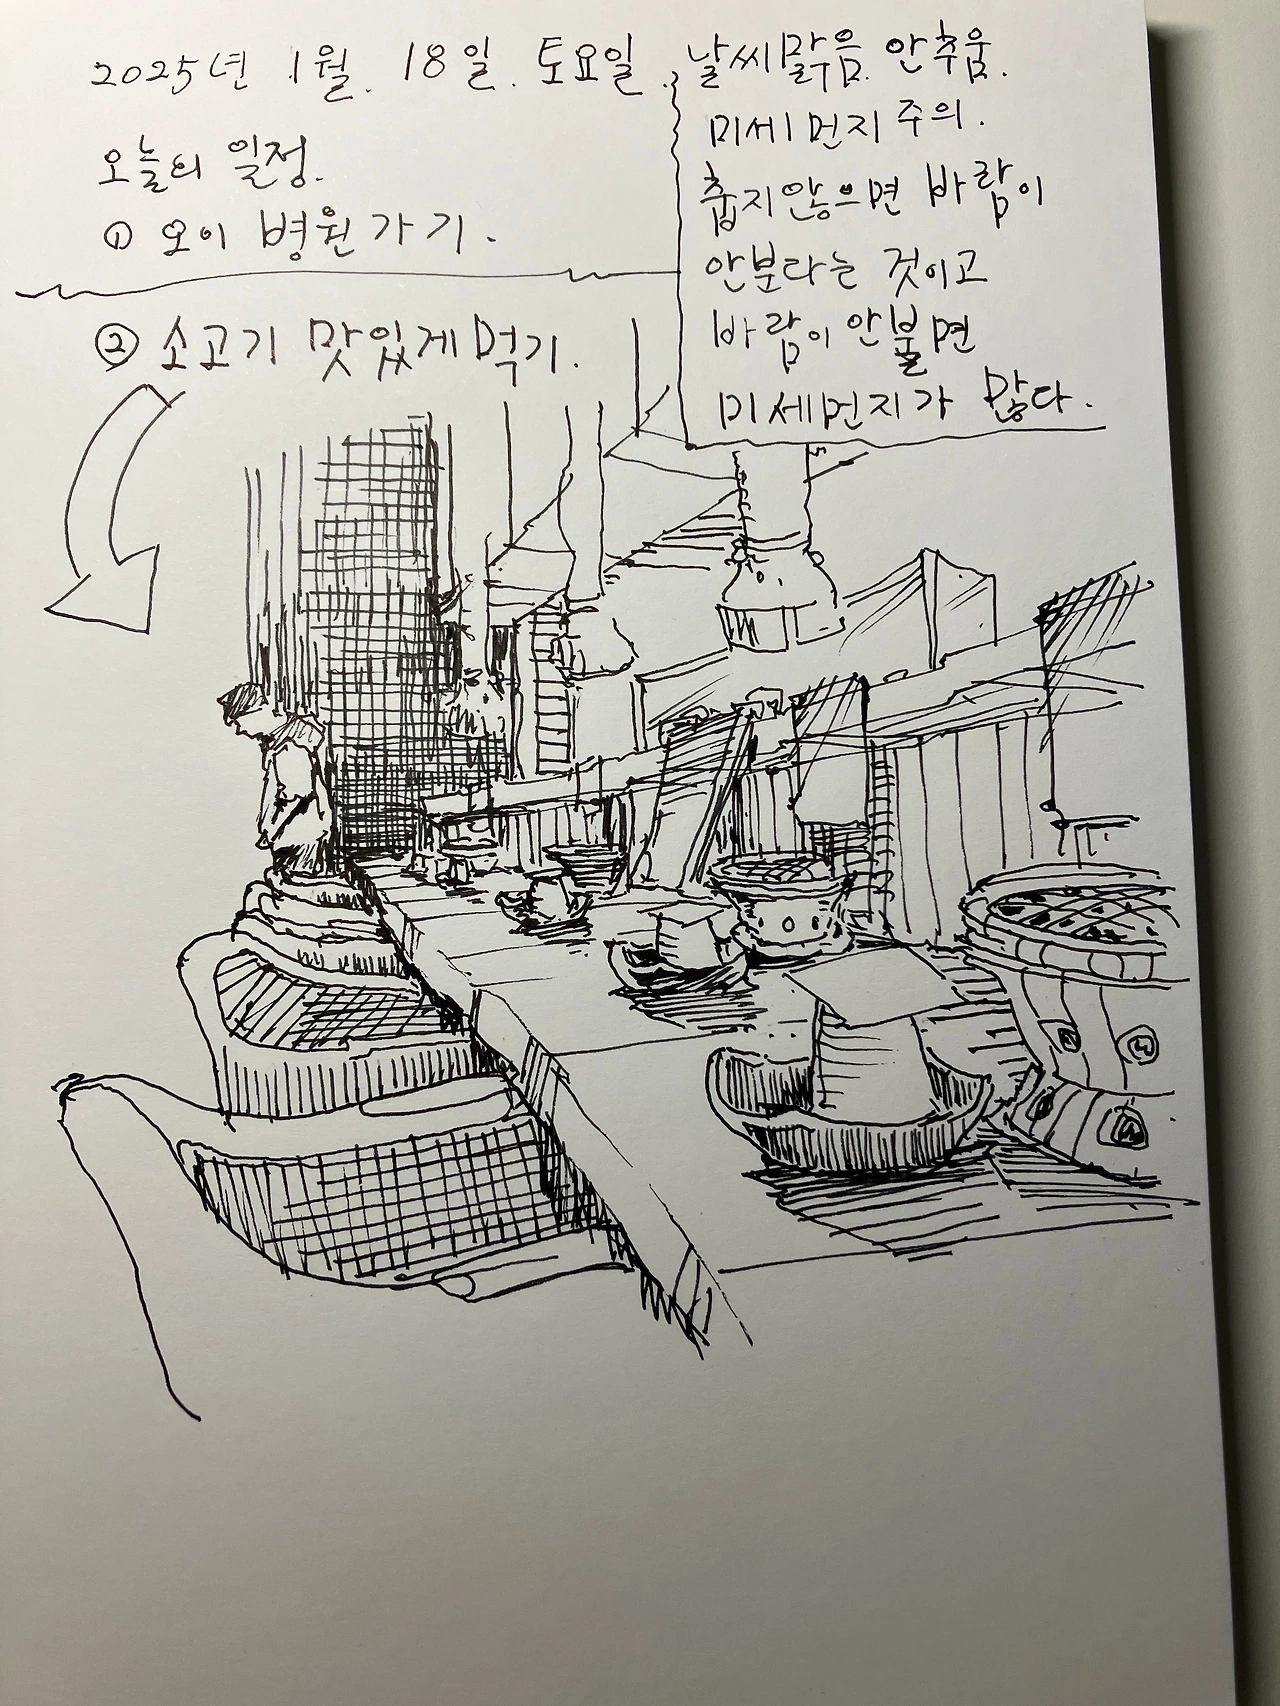 2025년 1월. 18일. 토요일. 날씨맑음. 안추움.
오늘의 일정.
① 오이 병원가기.
② 소고기 맛있게먹기.
미세먼지주의.
춥지않으면 바람이
안분다는 것이고
바람이안불면
미세먼지가 많다.